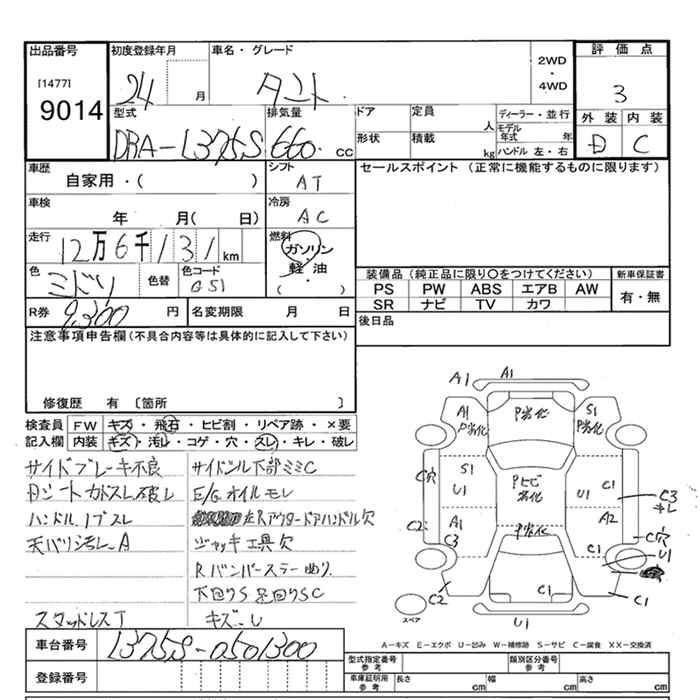 出品番号
[1477]
9014
初度登録年月
24 月
車名・グレード
タント
2WD
・
4WD
評価点
3
外装 内装
D C
型式
DBA-L375S
排気量
660 CC
ドア
形状
定員 人
積載 kg
ディーラー・並行
モデル年式 年
ハンドル 左・右
車歴
自家用・( )
シフト
AT
セールスポイント (正常に機能するものに限ります)
車検
年 月( 日)
冷房
AC
走行
12万6千131km
燃料
ガソリン・
軽油・
( )
色
ミドリ
色替
色コード
G51
装備品(純正品に限り〇をつけてください)
新車保証書
PS PW ABS エアB AW
SR ナビ TV カワ
有・無
R券
9,300 円
名変期限 月 日
後日品
注意事項申告欄(不具合内容等は具体的に記入して下さい)
修復歴 有 〔箇所 〕
検査員記入欄
FW キズ・飛石・ヒビ割・リペア跡・×要
内装 キズ・汚レ・コゲ・穴・スレ・キレ・破レ
サイドブレーキ不良
サイドシル下部ミミC
E/Gオイルモレ
ハンドル、ノブスレ
左Rアウタードアハンドル欠
天バリ汚レA
ジャッキ工具欠
Rバンパーステー曲り
下回りS 足回りSC
スマッドレスT
キズ、U
A1 A1
A1
P劣化
P劣化
S1
P劣化
C穴
S1
U1
Pヒビ
劣化
C1
C3
キレ
C2
A1
C3
P劣化
A2
C穴
C1
U1
C2
C1
スペア
U1
A-キズ E-エクボ U-凹み W-補修跡 S-サビ C-腐食 XX-交換済
車台番号
L375S-0501300
登録番号
型式指定番号
参考
類別区分番号
参考
車庫証明用
参考
長さ cm
幅 cm
高さ cm